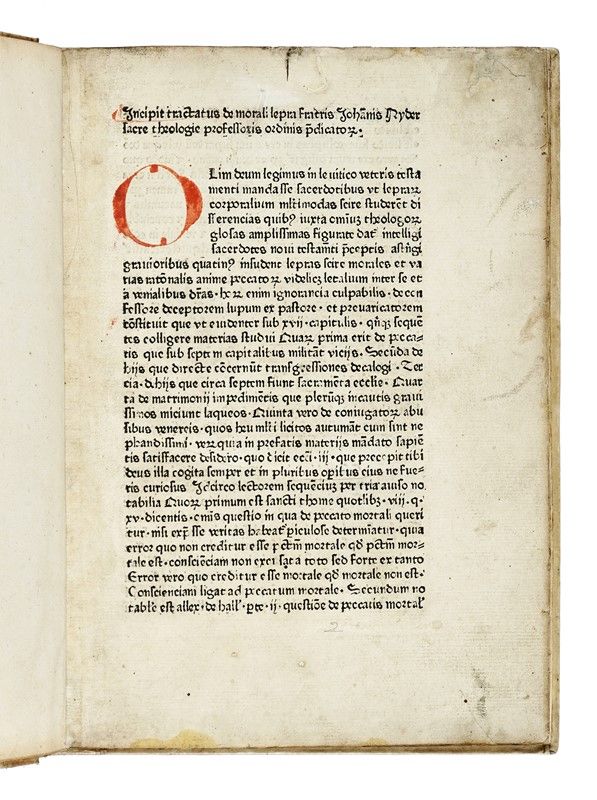 Incipit tractatus de morali lepra fratris Johānis Nyder
sacre theologie professoris ordinis p̄dicatoꝝ·
OLim deum legimus in leuitico veteris testa
menti mandasse sacerdotibus vt lepraꝝ
corporalium ml̄timodas scire studerēt di
fferencias quibꝯ iuxta omiuꝫ theologoꝝ
glosas amplissimas figurate dat᷑ intelligi
sacerdotes noui testam̄ti p̄ceptis astrīgi
grauioribus quatinꝯ insudent lepras scire morales et va
rias ratōnalis anime peccatoꝝ videlicꝫ letalium inter se et
a venialibus dr̄as· hoꝝ enim ignorancia culpabilis· de con
fessore deceptorem lupum ex pastore· et preuaricatorem
cōstituit que vt euidenter sub xvii· capitulis· qn̄qꝫ seque
tes colligere materias studui Quaꝝ prima erit de pecca-
tis que sub septem capitalibus militāt vicijs. Secūda de
hijs que directe cōcernūt transgressiones decalogi· Ter
cia· d̄ hijs que circa septem fiunt sacramēta ecclesie· Quar
ta de matrimonij impedimētis que plerūqꝫ incautis graui
ssimos iniciunt laqueos· Quinta vero de coniugatoꝝ abu
sibus venereis· quos heu ml̄ti licitos autumāt cum sint ne
phandissimi· veꝝ quia in prefatis materijs mādato sapiē
tis satisfacere desidero· quo dicit ecci· iij· que precepit tibi
deus illa cogita semper et in pluribus opībus eius ne fue-
ris curiosus Idcirco lectorem sequenciuꝫ per tria auiso no
tabilia Quoꝝ primum est sancti thome quotlibꝫ· viii· q·
xv· dicentis· omīs questio in qua de peccato mortali queri
tur· nisi exp̄sse veritas habeat᷑ piculose determīatur· quia
error quo non creditur esse pctm̄ mortale qd̄ pctm̄ mor-
tale est· conscienciam non
Error vero quo creditur esse mortale qd̄ mortale non est·
Conscienciam ligat ad peccatum mortale· Secundum no
tabile est allex· de hall᷑· p̄te· ii· questiōe de peccatis mortal᷑
2